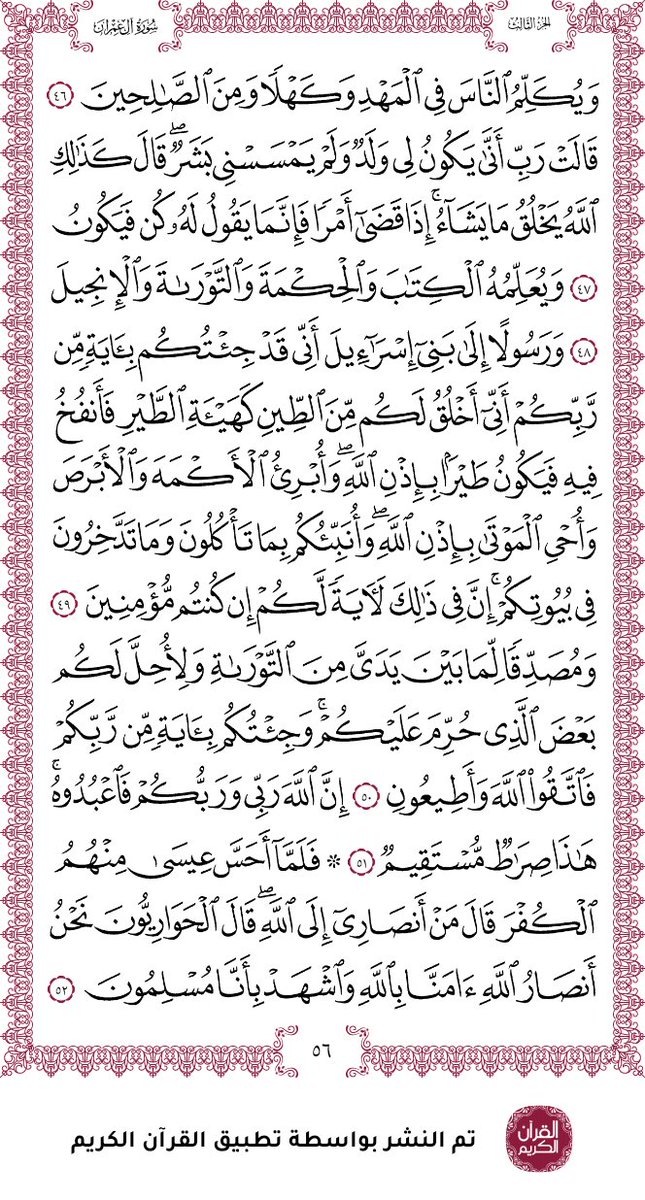 الجزء الثالث
سُورَةُ آلِ عِمْرَانَ
وَيُكَلِّمُ ٱلنَّاسَ فِي ٱلْمَهْدِ وَكَهْلًا وَمِنَ ٱلصَّٰلِحِينَ ٤٦
قَالَتْ رَبِّ أَنَّىٰ يَكُونُ لِي وَلَدٌ وَلَمْ يَمْسَسْنِي بَشَرٌۖ قَالَ كَذَٰلِكِ
ٱللَّهُ يَخْلُقُ مَا يَشَآءُۚ إِذَا قَضَىٰٓ أَمْرًا فَإِنَّمَا يَقُولُ لَهُۥ كُن فَيَكُونُ
٤٧ وَيُعَلِّمُهُ ٱلْكِتَٰبَ وَٱلْحِكْمَةَ وَٱلتَّوْرَىٰةَ وَٱلْإِنجِيلَ
٤٨ وَرَسُولًا إِلَىٰ بَنِيٓ إِسْرَٰٓءِيلَ أَنِّي قَدْ جِئْتُكُم بِـَٔايَةٍ مِّن
رَّبِّكُمْ أَنِّيٓ أَخْلُقُ لَكُم مِّنَ ٱلطِّينِ كَهَيْـَٔةِ ٱلطَّيْرِ فَأَنفُخُ
فِيهِ فَيَكُونُ طَيْرًۢا بِإِذْنِ ٱللَّهِۖ وَأُبْرِئُ ٱلْأَكْمَهَ وَٱلْأَبْرَصَ
وَأُحْيِ ٱلْمَوْتَىٰ بِإِذْنِ ٱللَّهِۖ وَأُنَبِّئُكُم بِمَا تَأْكُلُونَ وَمَا تَدَّخِرُونَ
فِي بُيُوتِكُمْۚ إِنَّ فِي ذَٰلِكَ لَأٓيَةً لَّكُمْ إِن كُنتُم مُّؤْمِنِينَ ٤٩
وَمُصَدِّقًا لِّمَا بَيْنَ يَدَيَّ مِنَ ٱلتَّوْرَىٰةِ وَلِأُحِلَّ لَكُم
بَعْضَ ٱلَّذِي حُرِّمَ عَلَيْكُمْۚ وَجِئْتُكُم بِـَٔايَةٍ مِّن رَّبِّكُمْ
فَٱتَّقُوا۟ ٱللَّهَ وَأَطِيعُونِ ٥٠ إِنَّ ٱللَّهَ رَبِّي وَرَبُّكُمْ فَٱعْبُدُوهُۚ
هَٰذَا صِرَٰطٌ مُّسْتَقِيمٌ ٥١ * فَلَمَّآ أَحَسَّ عِيسَىٰ مِنْهُمُ
ٱلْكُفْرَ قَالَ مَنْ أَنصَارِيٓ إِلَى ٱللَّهِۖ قَالَ ٱلْحَوَارِيُّونَ نَحْنُ
أَنصَارُ ٱللَّهِ ءَامَنَّا بِٱللَّهِ وَٱشْهَدْ بِأَنَّا مُسْلِمُونَ ٥٢
٥٦
تم النشر بواسطة تطبيق القرآن الكريم
القرآن
الكريم